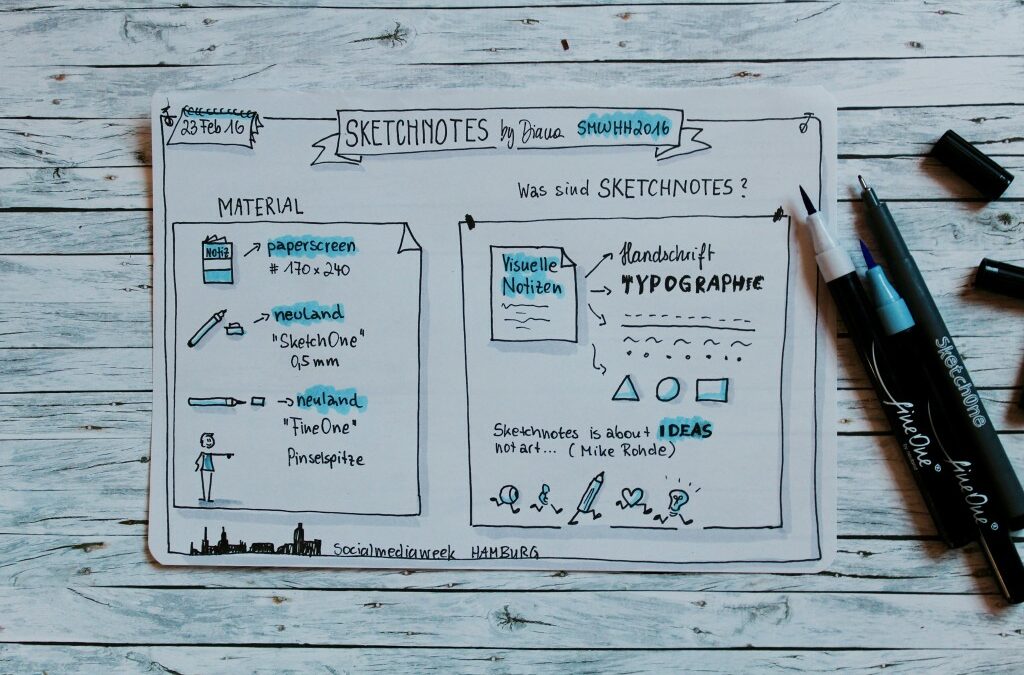 23 Feb 16
SKETCHNOTES by Diana SMWHH2016
MATERIAL
NOTIZ
paperscreen
# 170 x 240
neuland
"SketchOne"
0,5 mm
neuland
"FineOne"
Pinselspitze
Was sind SKETCHNOTES?
Visuelle
Notizen
Handschrift
TYPOGRAPHIE
Sketchnotes is about IDEAS
not art... (Mike Rohde)
Socialmediaweek HAMBURG
sketchOne
fineOne®
fineOne®